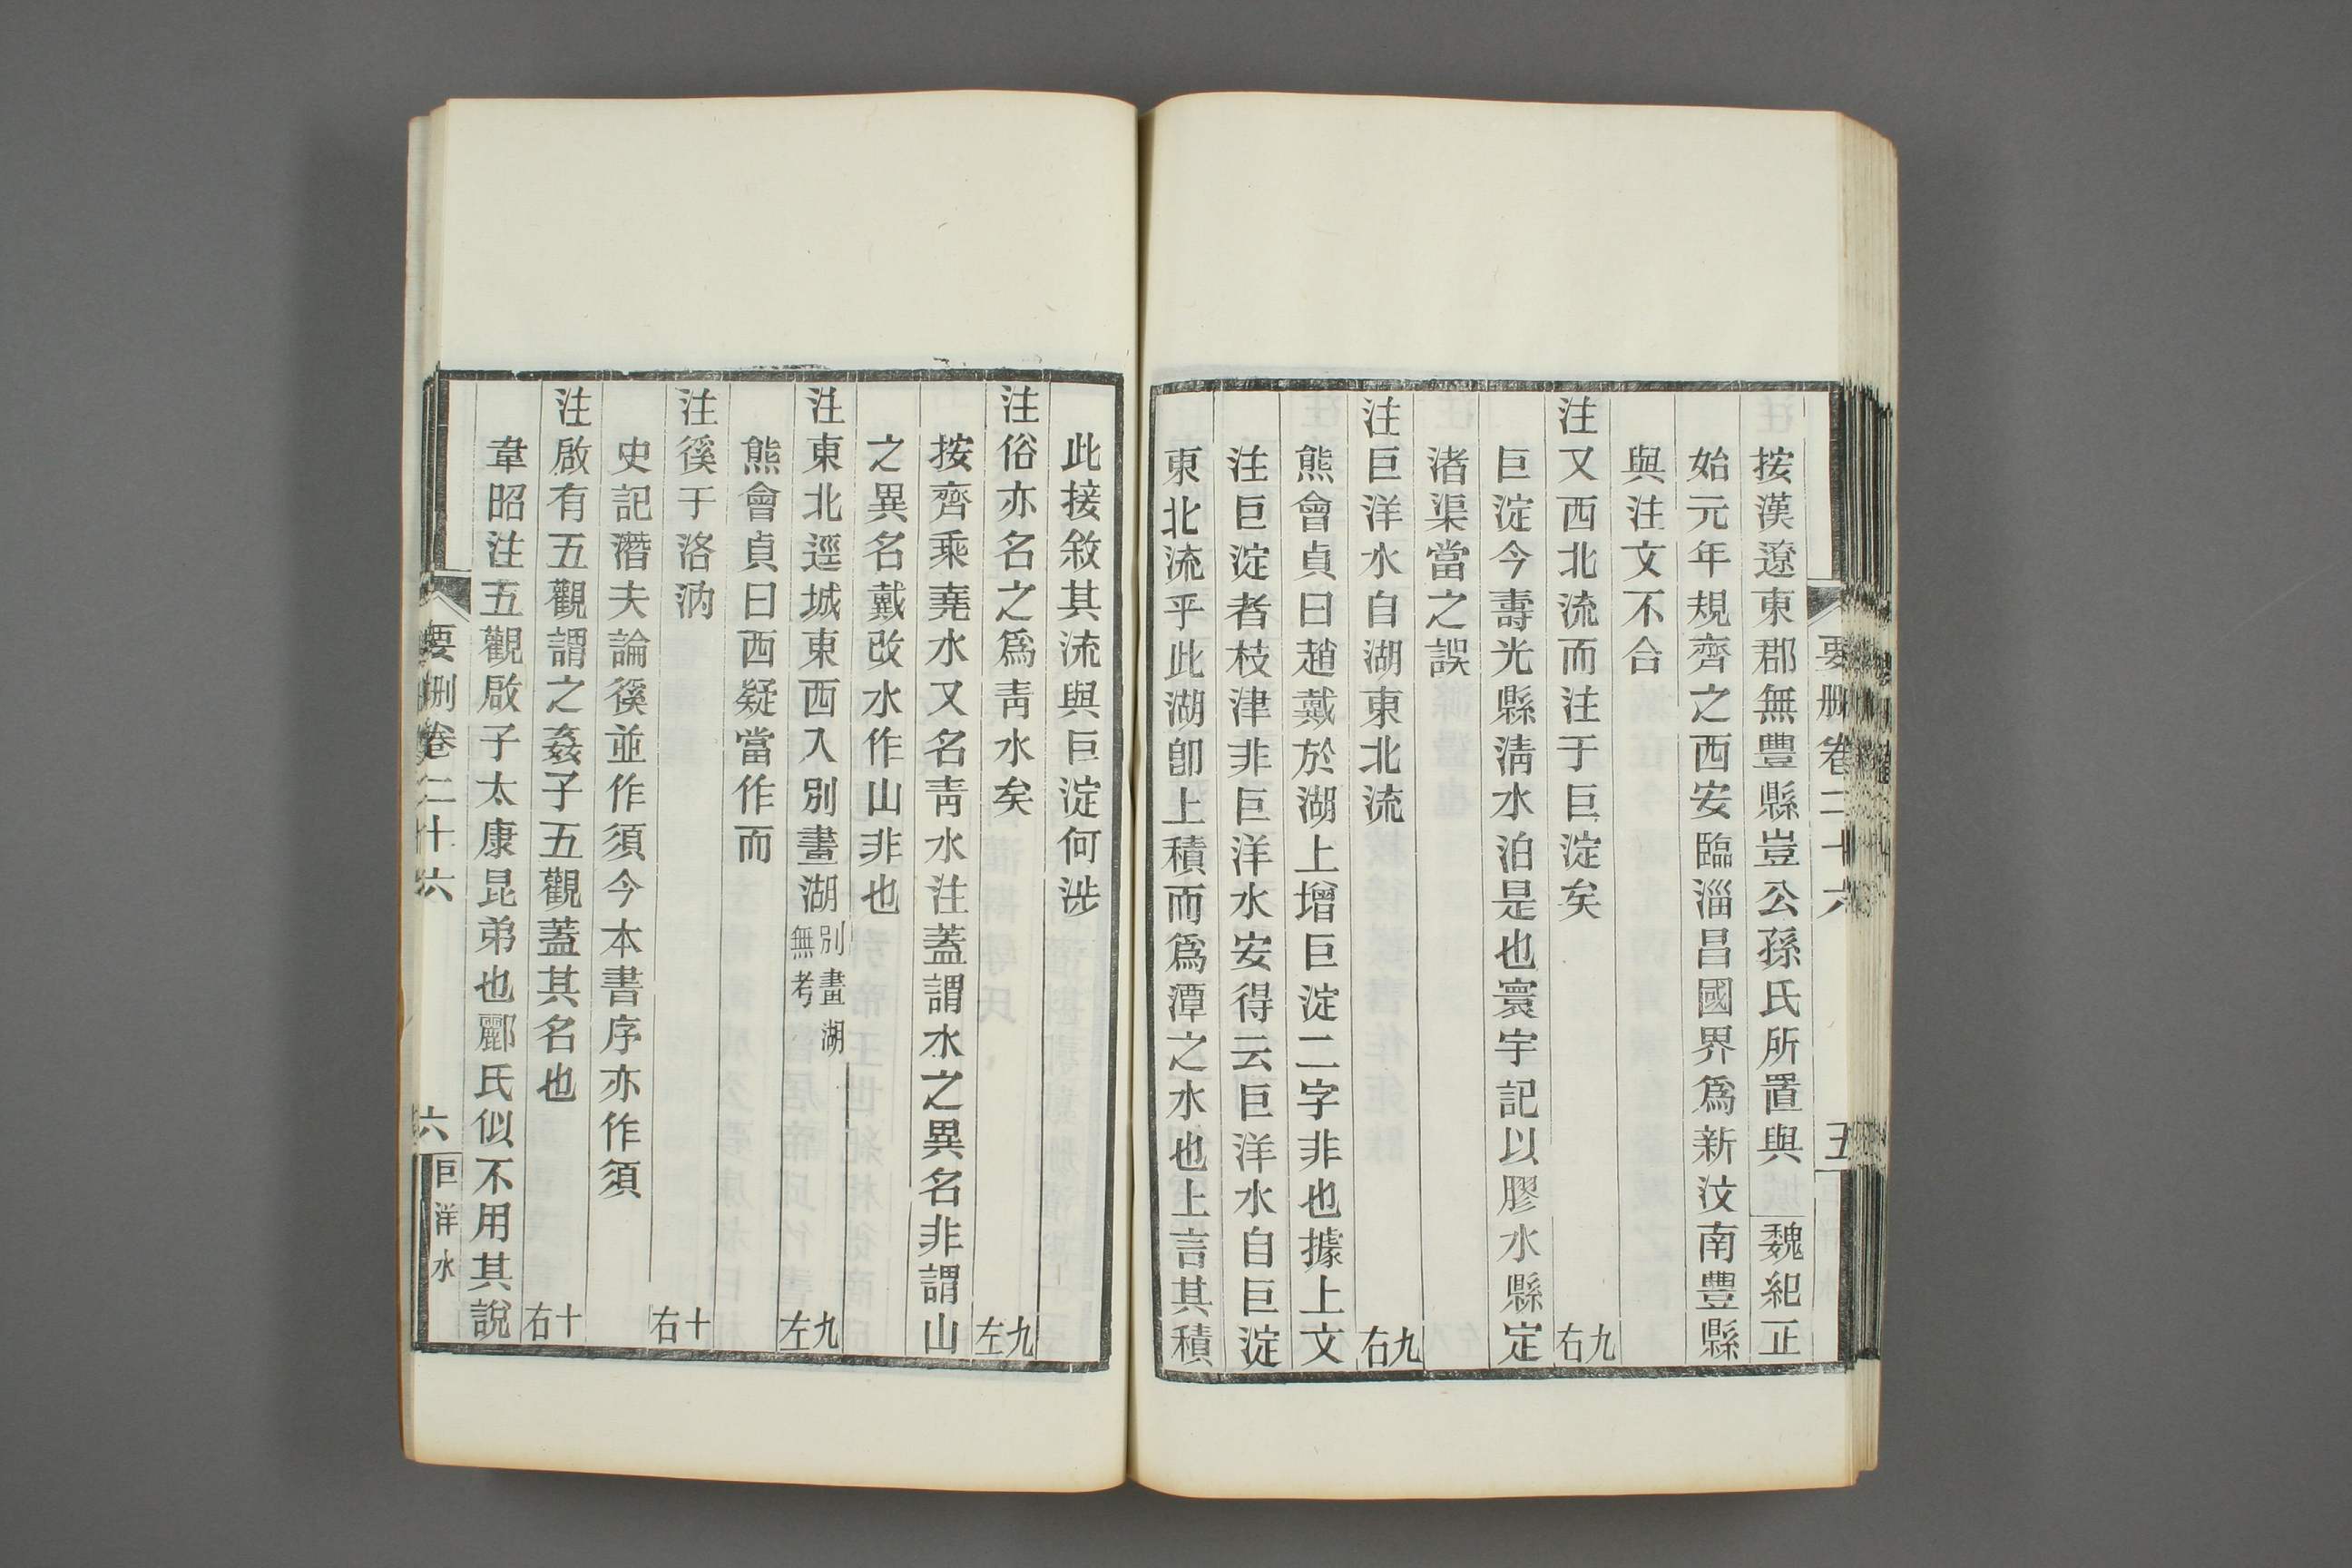 要刪卷二十六 五
按漢遼東郡無豐縣豈公孫氏所置與 魏紀正
始元年規齊之西安臨淄昌國界爲新汶南豐縣
與注文不合
注又西北流而注于巨淀矣 九右
巨淀今壽光縣淸水泊是也寰宇記以膠水縣定
渚渠當之誤
注巨洋水自湖東北流 九右
熊會貞曰趙戴於湖上增巨淀二字非也據上文
注巨淀者枝津非巨洋水安得云巨洋水自巨淀
東北流乎此湖卽上積而爲潭之水也上言其積
此接敘其流與巨淀何涉
注俗亦名之爲靑水矣 九左
按齊乘堯水又名靑水注蓋謂水之異名非謂山
之異名戴改水作山非也
注東北逕城東西入別畫湖 別畫湖無考 九左
熊會貞曰西疑當作而
注徯于洛汭 十右
史記潛夫論徯並作須今本書序亦作須
注啟有五觀謂之姦子五觀蓋其名也 十右
韋昭注五觀啟子太康昆弟也酈氏似不用其說
要刪卷二十六 六 巨洋水